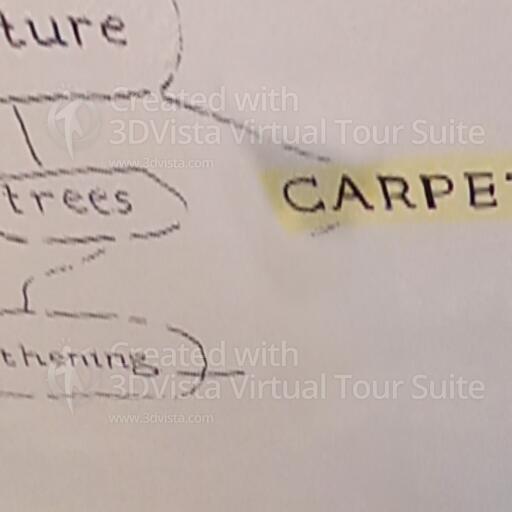 ture
Created with
3DVista Virtual Tour Suite
www.3dvista.com
trees
CARPET
thening
Created with
3DVista Virtual Tour Suite
www.3dvista.com